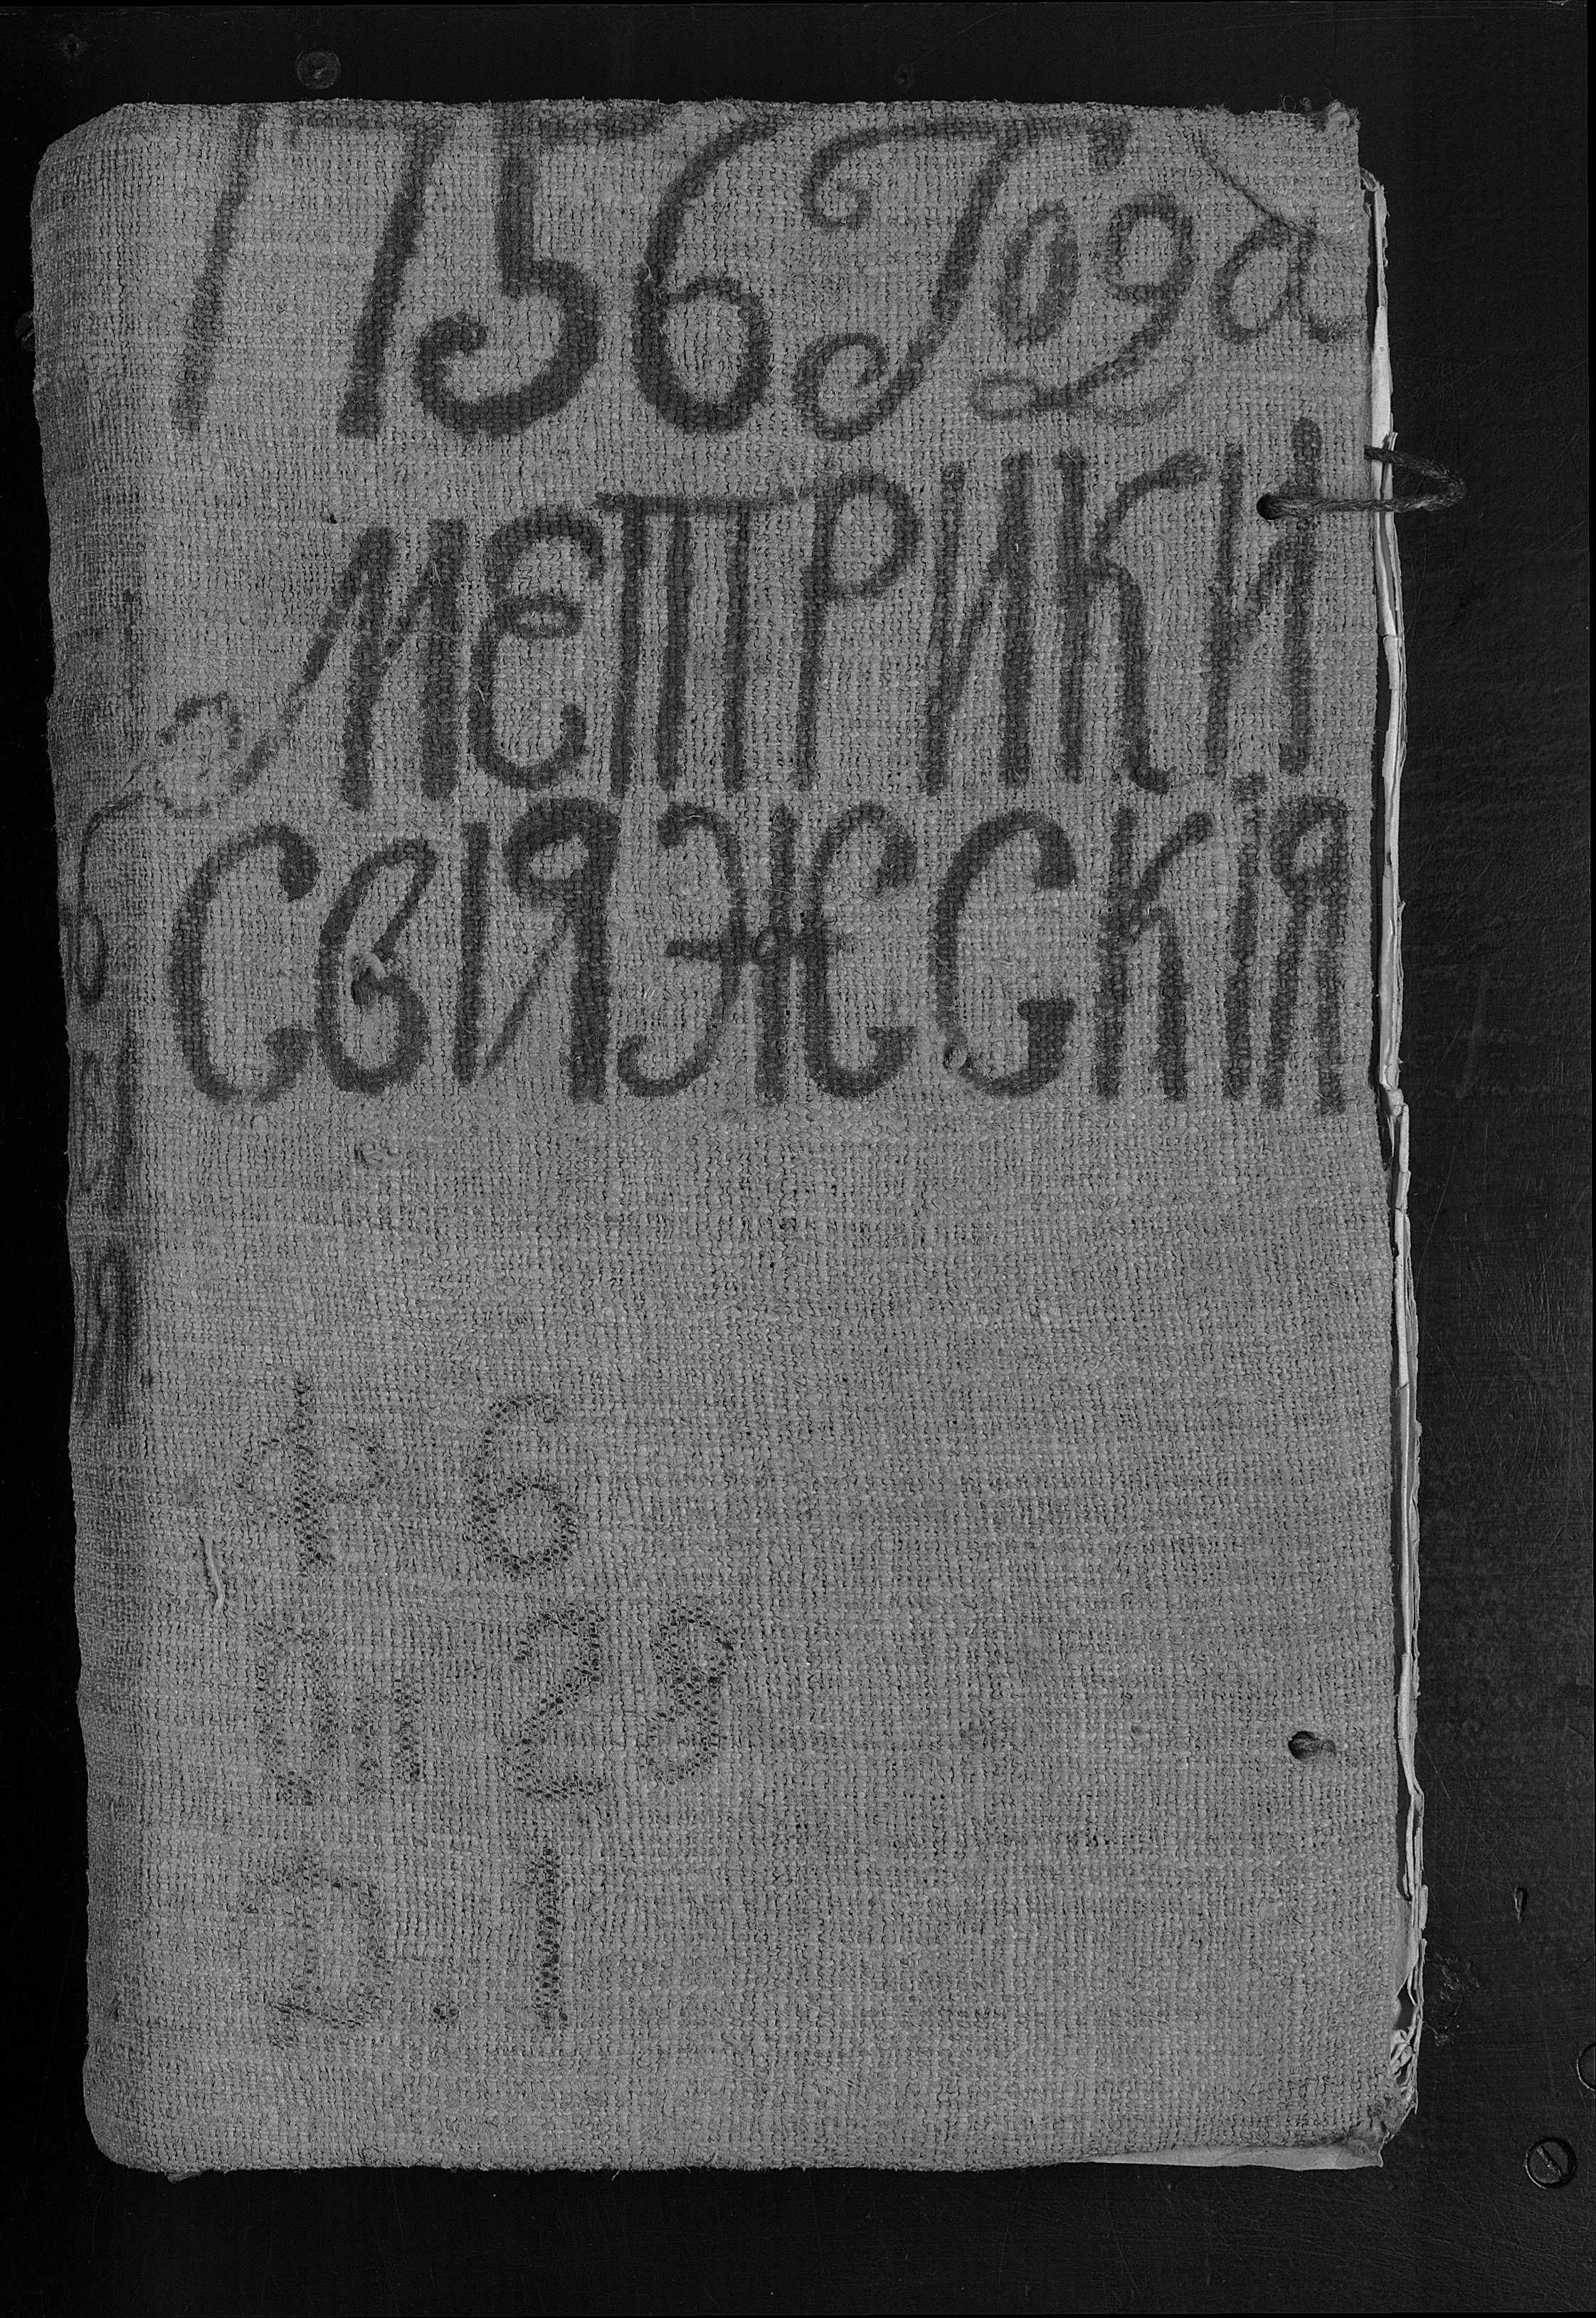 1756 Года
МЕТРИКИ
СВІЯЖСКІЯ
ф 6
оп 28
D. 1